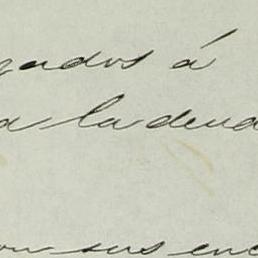 gados á
a la deud
con sus enc